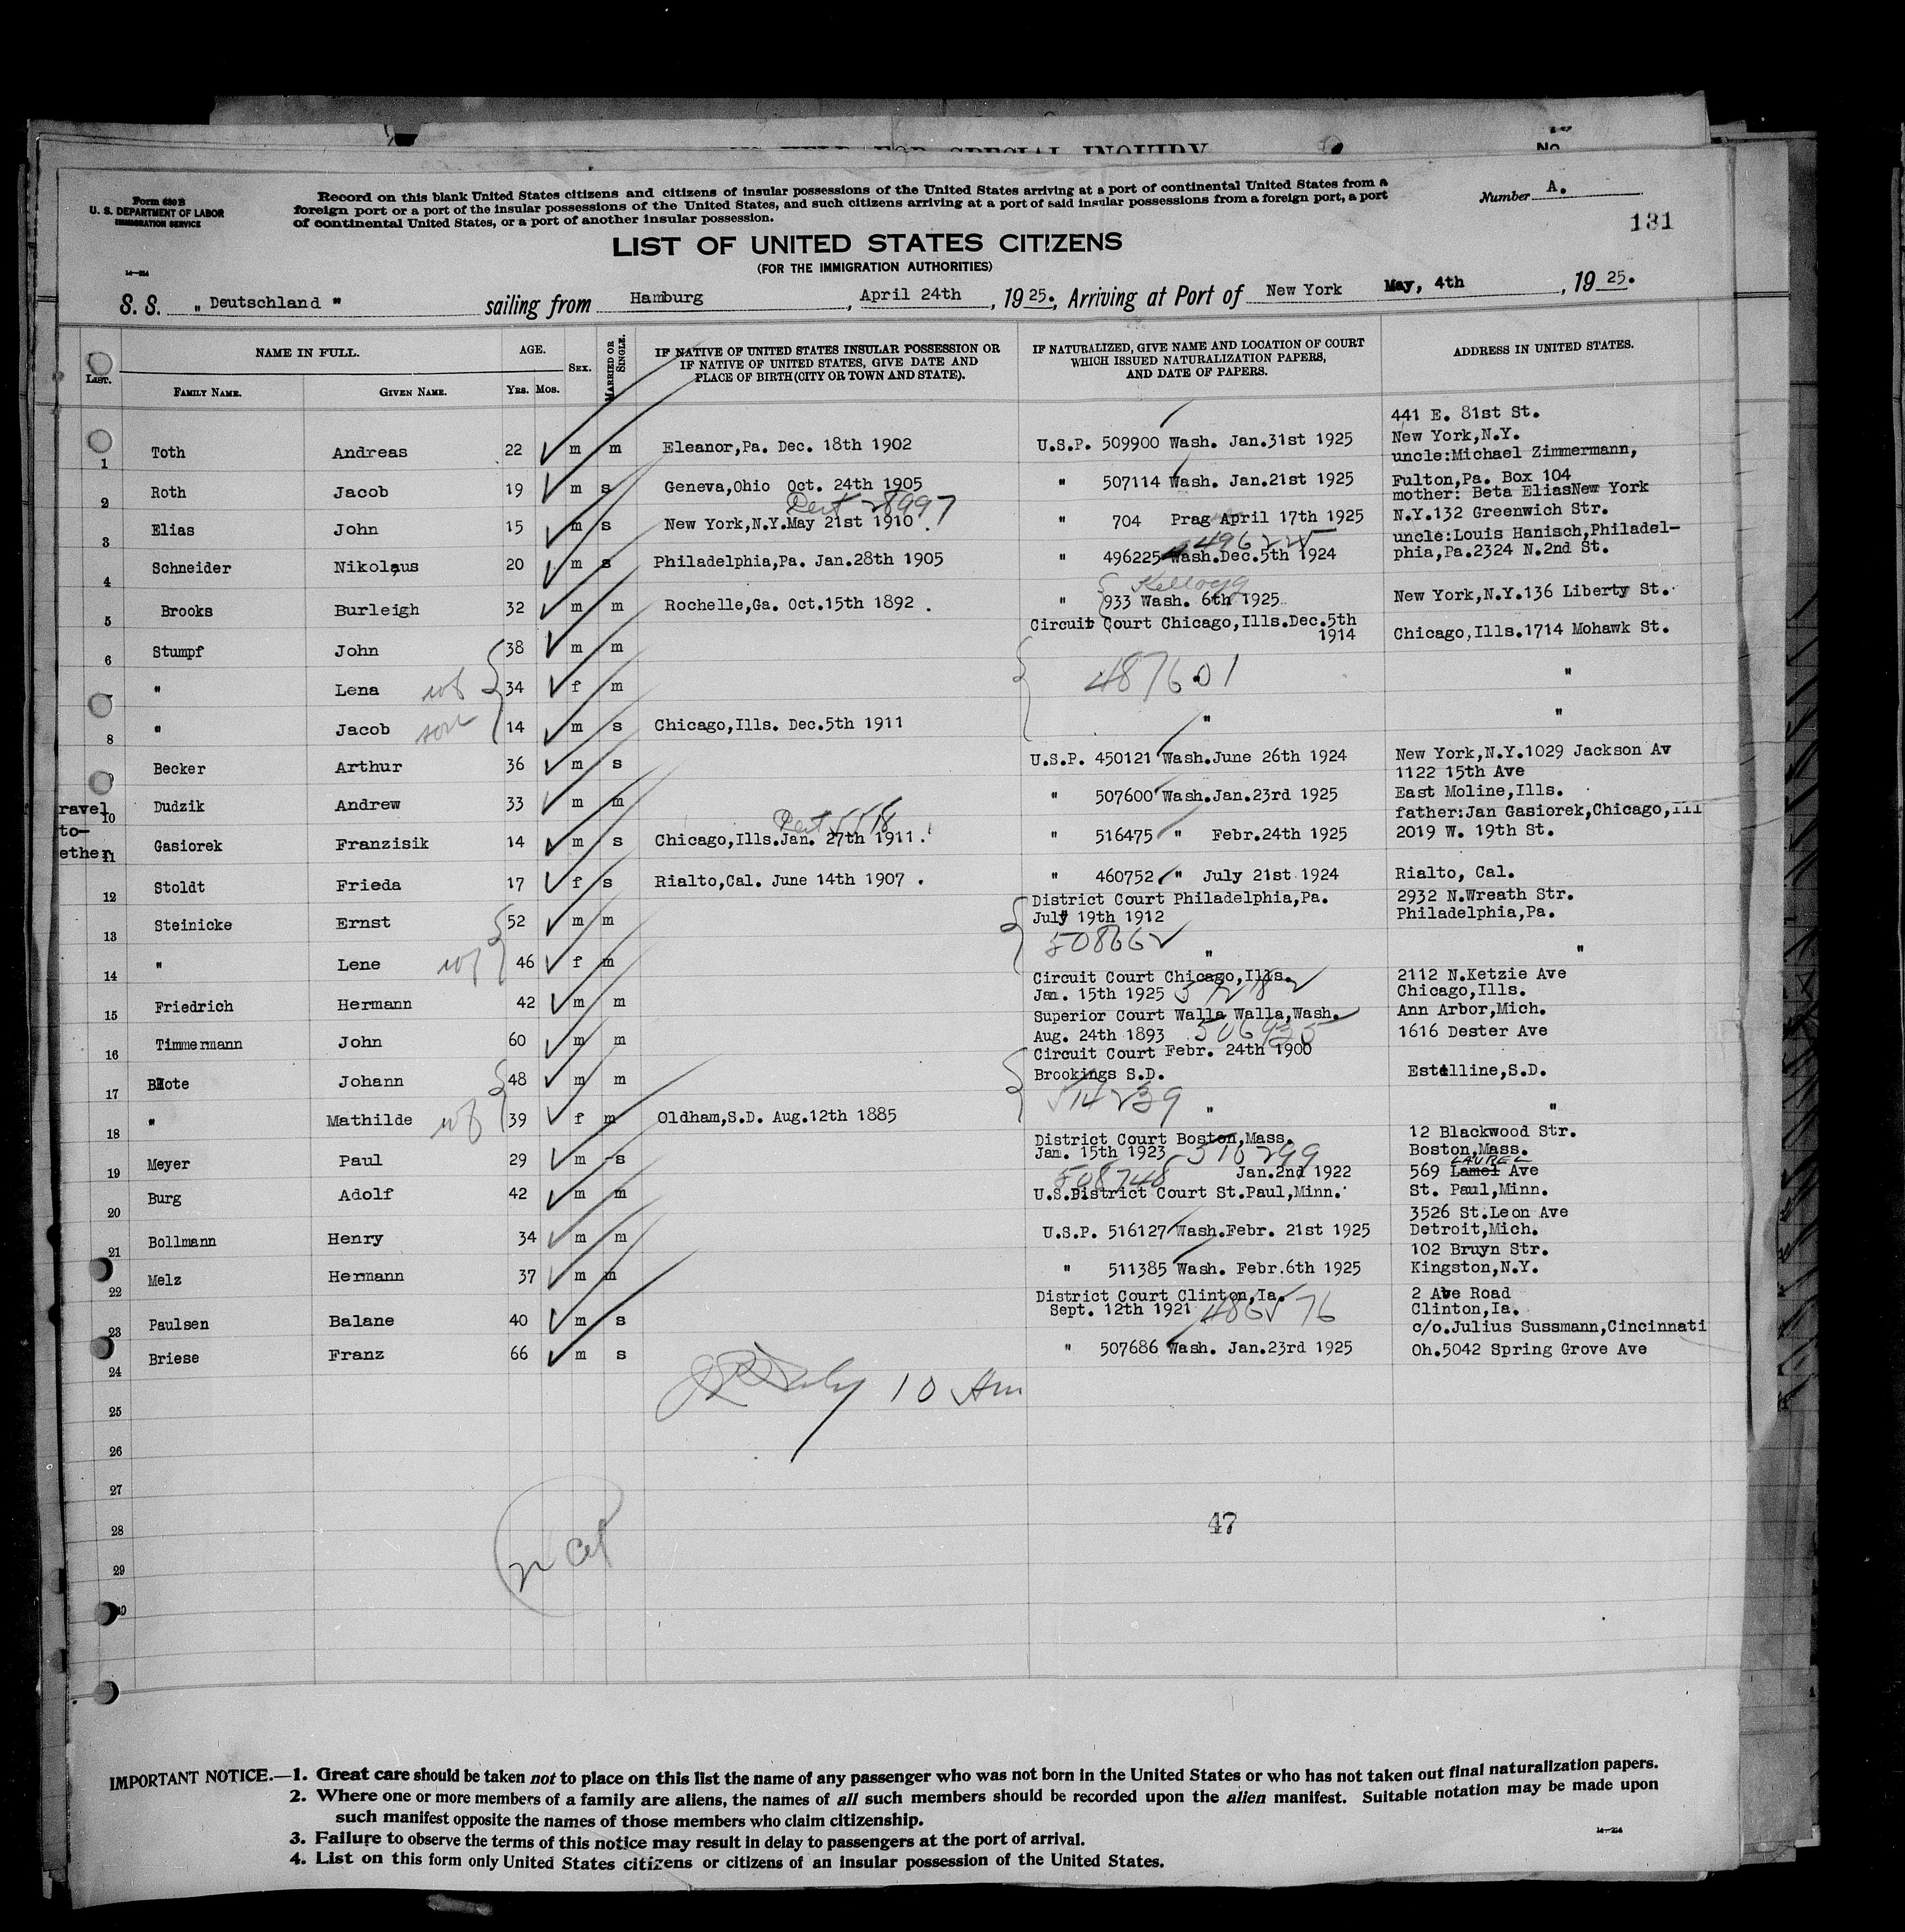 SPECIAL INQUIRY
No.
Form 630 B
U. S. DEPARTMENT OF LABOR
IMMIGRATION SERVICE
Record on this blank United States citizens and citizens of insular possessions of the United States arriving at a port of continental United States from a
foreign port or a port of the insular possessions of the United States, and such citizens arriving at a port of said insular possessions from a foreign port, a port
of continental United States, or a port of another insular possession.
Number A.
131
LIST OF UNITED STATES CITIZENS
(FOR THE IMMIGRATION AUTHORITIES)
S. S. „ Deutschland " sailing from Hamburg, April 24th, 1925., Arriving at Port of New York May, 4th, 1925.
LIST. NAME IN FULL. AGE. SEX. MARRIED OR SINGLE. IF NATIVE OF UNITED STATES INSULAR POSSESSION OR IF NATIVE OF UNITED STATES, GIVE DATE AND PLACE OF BIRTH (CITY OR TOWN AND STATE). IF NATURALIZED, GIVE NAME AND LOCATION OF COURT WHICH ISSUED NATURALIZATION PAPERS, AND DATE OF PAPERS. ADDRESS IN UNITED STATES.
FAMILY NAME. GIVEN NAME. YRS. MOS.
441 E. 81st St.
1 Toth Andreas 22 m m Eleanor,Pa. Dec. 18th 1902 U.S.P. 509900 Wash. Jan.31st 1925 New York,N.Y.
uncle:Michael Zimmermann,
2 Roth Jacob 19 m s Geneva,Ohio Oct. 24th 1905 " 507114 Wash. Jan.21st 1925 Fulton,Pa. Box 104
28997 mother: Beta EliasNew York
3 Elias John 15 m s New York,N.Y.May 21st 1910 . " 704 Prag April 17th 1925 N.Y.132 Greenwich Str.
496225 uncle:Louis Hanisch,Philadel-
4 Schneider Nikolaus 20 m s Philadelphia,Pa. Jan.28th 1905 " 496225 Wash.Dec.5th 1924 phia,Pa.2324 N.2nd St.
Kellogg
5 Brooks Burleigh 32 m m Rochelle,Ga. Oct.15th 1892 . " 933 Wash. 6th 1925 New York,N.Y.136 Liberty St.
Circuit Court Chicago,Ills.Dec.5th
1914
6 Stumpf John 38 m m Chicago,Ills.1714 Mohawk St.
" Lena wf 34 f m 487601 "
8 " Jacob son 14 m s Chicago,Ills. Dec.5th 1911 " "
9 Becker Arthur 36 m s U.S.P. 450121 Wash.June 26th 1924 New York,N.Y.1029 Jackson Av
1122 15th Ave
ravel 10 Dudzik Andrew 33 m m " 507600 Wash.Jan.23rd 1925 East Moline,Ills.
to- father:Jan Gasiorek,Chicago,Ill
ether 11 Gasiorek Franzisik 14 m s Chicago,Ills.Jan. 27th 1911. " 516475 " Febr.24th 1925 2019 W. 19th St.
12 Stoldt Frieda 17 f s Rialto,Cal. June 14th 1907 . " 460752 " July 21st 1924 Rialto, Cal.
District Court Philadelphia,Pa. 2932 N.Wreath Str.
13 Steinicke Ernst 52 m m July 19th 1912 Philadelphia,Pa.
508662
14 " Lene wf 46 f m " "
Circuit Court Chicago,Ills. 2112 N.Ketzie Ave
15 Friedrich Hermann 42 m m Jan. 15th 1925 Chicago,Ills.
Superior Court Walla Walla,Wash. Ann Arbor,Mich.
16 Timmermann John 60 m m Aug. 24th 1893 506935 1616 Dester Ave
Circuit Court Febr. 24th 1900
17 Bhote Johann 48 m m Brookings S.D. Estelline,S.D.
514239
18 " Mathilde wf 39 f m Oldham,S.D. Aug.12th 1885 " "
District Court Boston,Mass. 12 Blackwood Str.
19 Meyer Paul 29 m s Jan. 15th 1923 Boston,Mass.
LAUREL
508748 Jan.2nd 1922 569 Lamel Ave
20 Burg Adolf 42 m m U.S.District Court St.Paul,Minn. St. Paul,Minn.
3526 St.Leon Ave
21 Bollmann Henry 34 m m U.S.P. 516127 Wash.Febr. 21st 1925 Detroit,Mich.
102 Bruyn Str.
22 Melz Hermann 37 m m " 511385 Wash. Febr.6th 1925 Kingston,N.Y.
District Court Clinton,Ia. 2 Ave Road
23 Paulsen Balane 40 m s Sept. 12th 1921 486576 Clinton,Ia.
c/o.Julius Sussmann,Cincinnati
24 Briese Franz 66 m s " 507686 Wash. Jan.23rd 1925 Oh.5042 Spring Grove Ave
10 Am
25
26
27
28
47
29
30
IMPORTANT NOTICE.—1. Great care should be taken not to place on this list the name of any passenger who was not born in the United States or who has not taken out final naturalization papers.
2. Where one or more members of a family are aliens, the names of all such members should be recorded upon the alien manifest. Suitable notation may be made upon
such manifest opposite the names of those members who claim citizenship.
3. Failure to observe the terms of this notice may result in delay to passengers at the port of arrival.
4. List on this form only United States citizens or citizens of an insular possession of the United States.